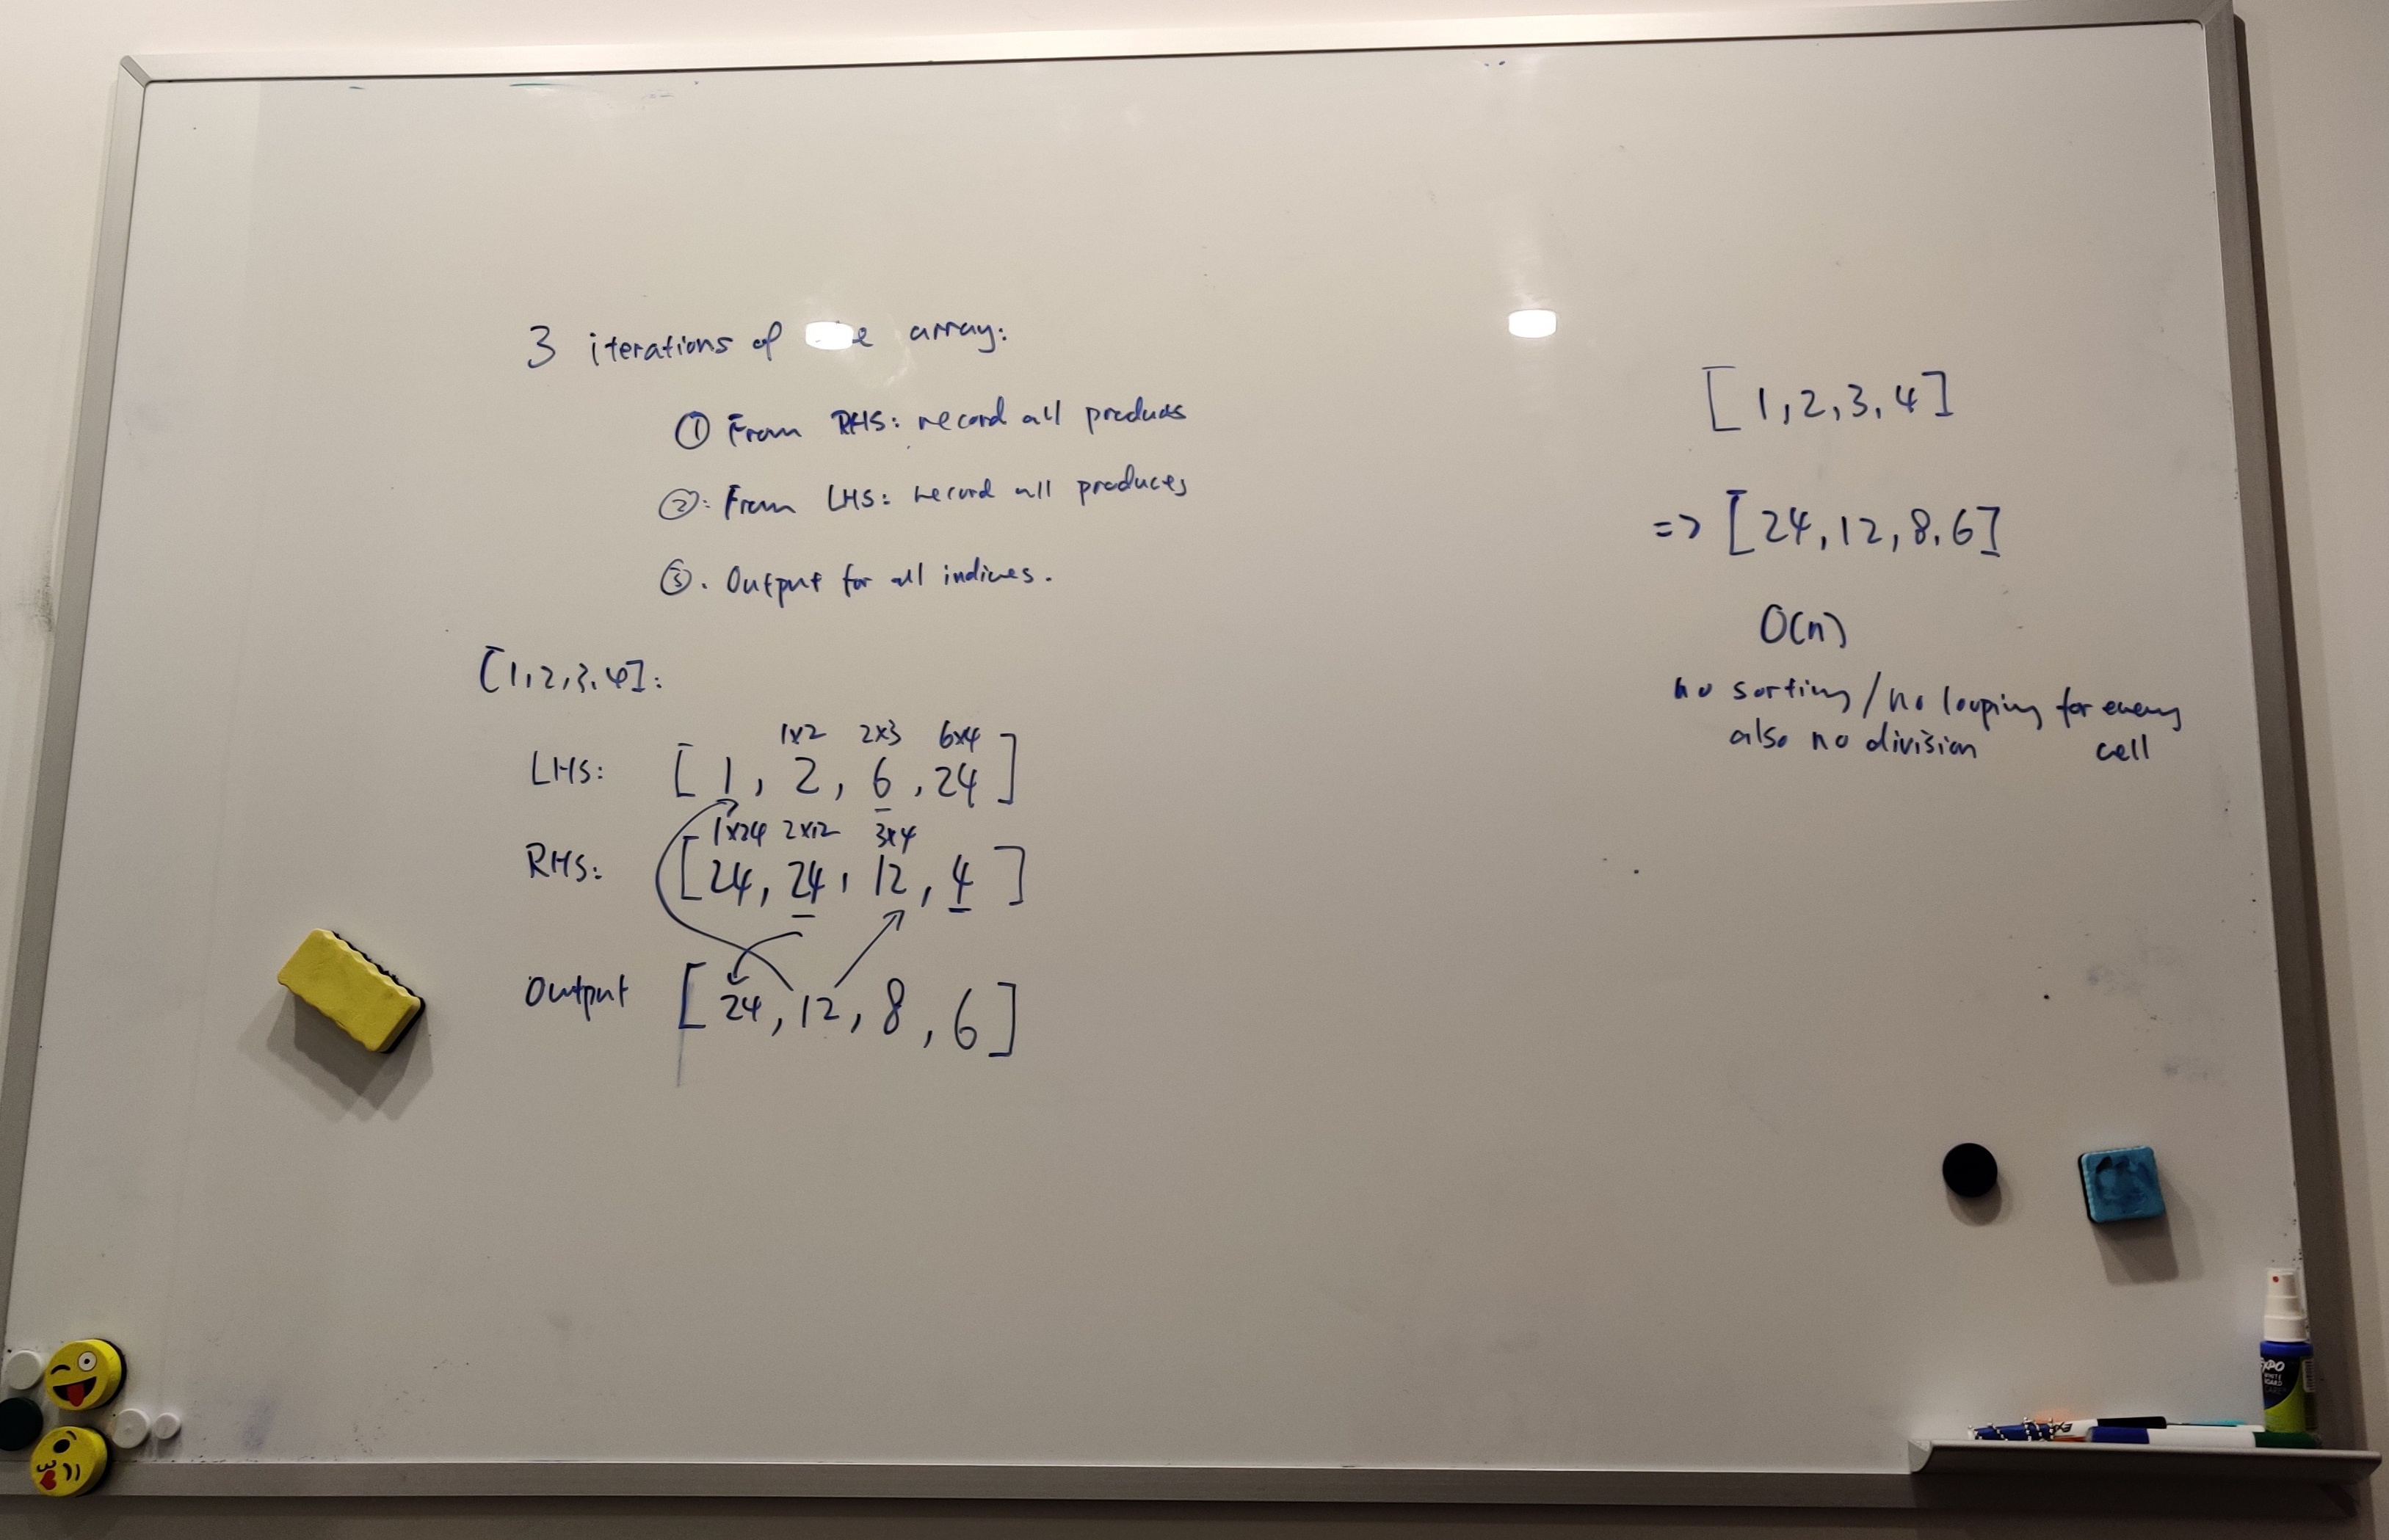 3 iterations of array:
① From RHS: record all products
②: From LHS: record all products
③. Output for all indices.
[1,2,3,4]:
1x2 2x3 6x4
LHS: [ 1, 2, 6, 24 ]
1x24 2x12 3x4
RHS: [24, 24, 12, 4 ]
Output [ 24, 12, 8, 6 ]
[ 1, 2, 3, 4 ]
=> [ 24, 12, 8, 6]
O(n)
no sorting / no looping for every
also no division cell
EXPO